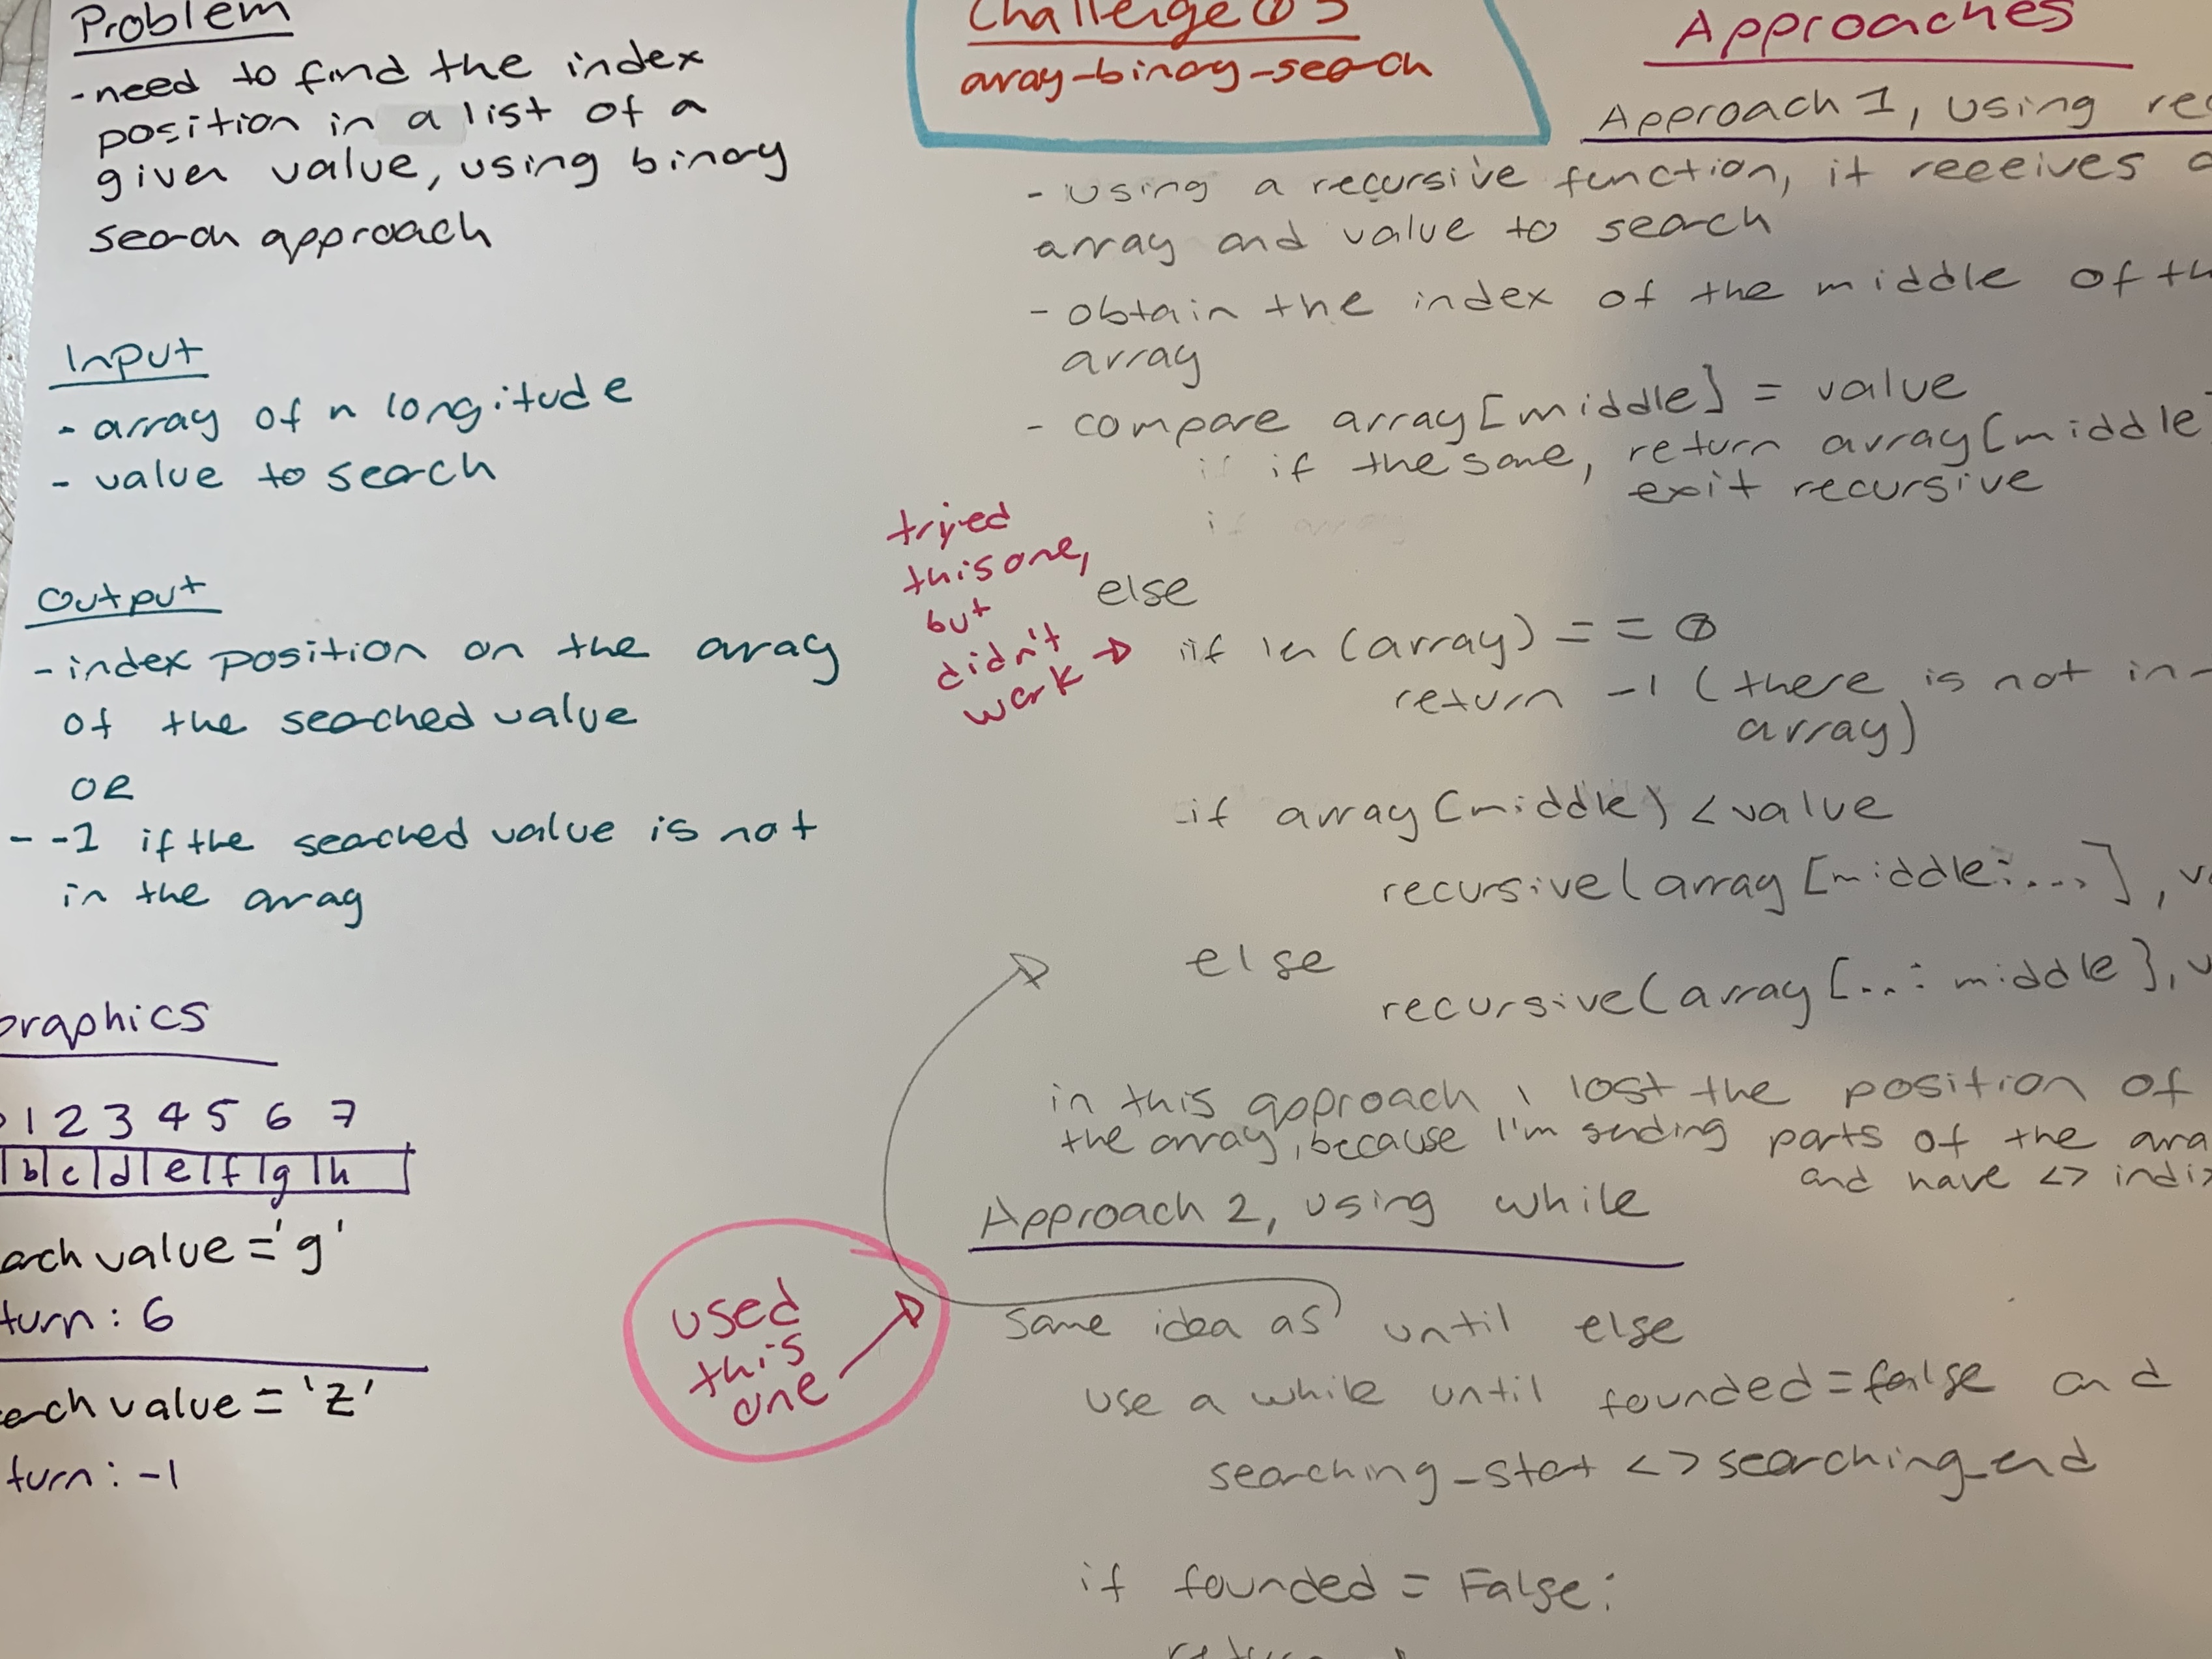 Problem
-need to find the index
position in a list of a
given value, using binary
search approach
Input
- array of n longitude
- value to search
Output
- index position on the array
of the searched value
OR
- -1 if the searched value is not
in the array
Graphics
1 2 3 4 5 6 7
b c d e f g h
value = 'g'
: 6
value = 'z'
: -1
Challenge 03
array-binary-search
Approaches
Approach 1, using
- using a recursive function, it receives
array and value to search
- obtain the index of the middle of
array
- compare array[middle] = value
if the same, return array[middle
exit recursive
tryed
this one,
but
didn't
work
else
if len(array) == 0
return -1 (there is not in-
array)
-if array(middle) < value
recursive(array[middle:...],
else
recursive(array[...:middle],
in this approach I lost the position of
the array, because I'm sending parts of the
and have <>
Approach 2, using while
used
this
one
same idea as until else
use a while until founded=false and
searching_start <> searching_end
if founded = False: